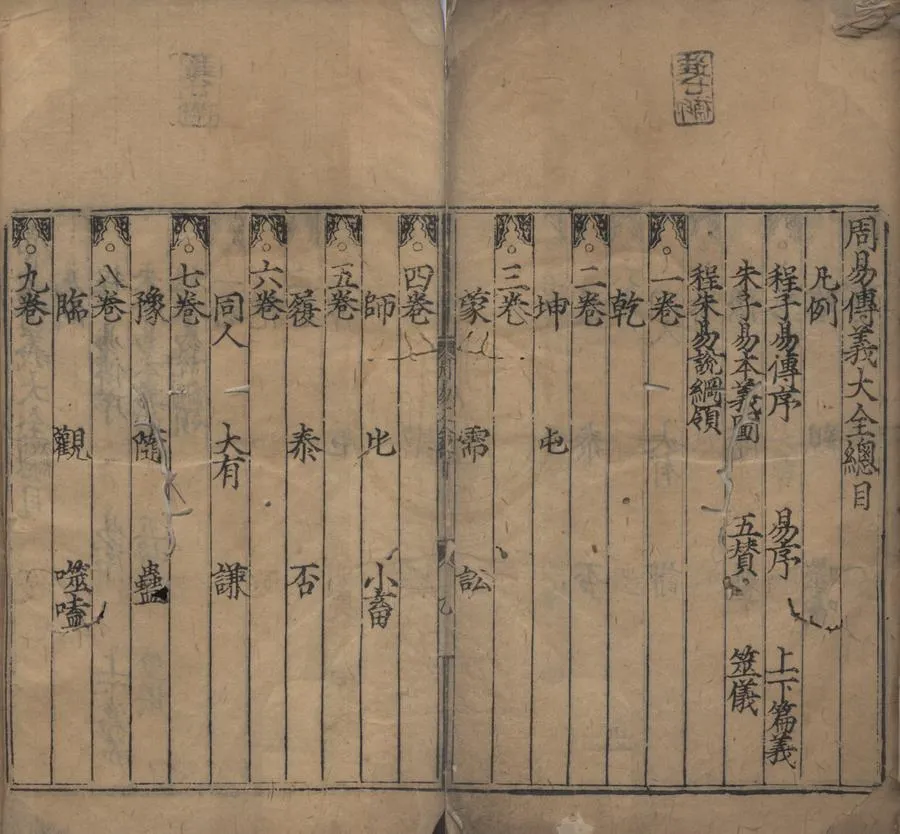 周易傳義大全總目
凡例
程子易傳序 易序 上下篇義
朱子易本義圖 五贊 筮儀
程朱易說綱領
一卷
乾
二卷
坤 屯
三卷
蒙 需 訟
四卷
師 比 小畜
五卷
履 泰 否
六卷
同人 大有 謙
七卷
豫 隨 蠱
八卷
臨 觀 噬嗑
九卷